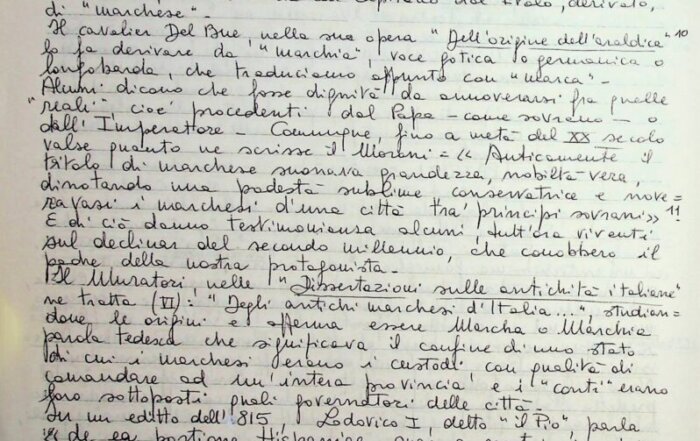 di "marchese".-
Il cavalier Del Bue, nella sua opera "Dell'origine dell'araldica" 10
lo fa derivare da "marchia", voce gotica o germanica o
longobarda, che traduciamo appunto con "marca".-
Alcuni dicono che fosse dignità da annoverarsi fra quelle
"reali", cioè procedenti dal Papa - come sovrano - o
dall'Imperatore.- Comunque, fino a metà del XX secolo
valse quanto ne scrisse il Morani = << Anticamente il
titolo di marchese suonava grandezza, nobiltà vera,
dinotando una podestà sublime conservatrice e nove=
ravasi i marchesi d'una città tra' principi sovrani>> 11
E di ciò danno testimonianza alcuni, tutt'ora viventi
sul declinar del secondo millennio, che conobbero il
padre della nostra protagonista.-
Il Muratori, nelle "Dissertazioni sulle antichità italiane"
ne tratta (VI): "Degli antichi marchesi d'Italia...", studian=
done le origini e afferma essere Marcha o Marchia
parola tedesca che significava il confine di uno stato
di cui i marchesi erano i custodi con qualità di
comandare ad un'intera provincia e i "conti" erano
loro sottoposti quali governatori delle città.-
In un editto dell'815, Lodovico I, detto "il Pio", parla